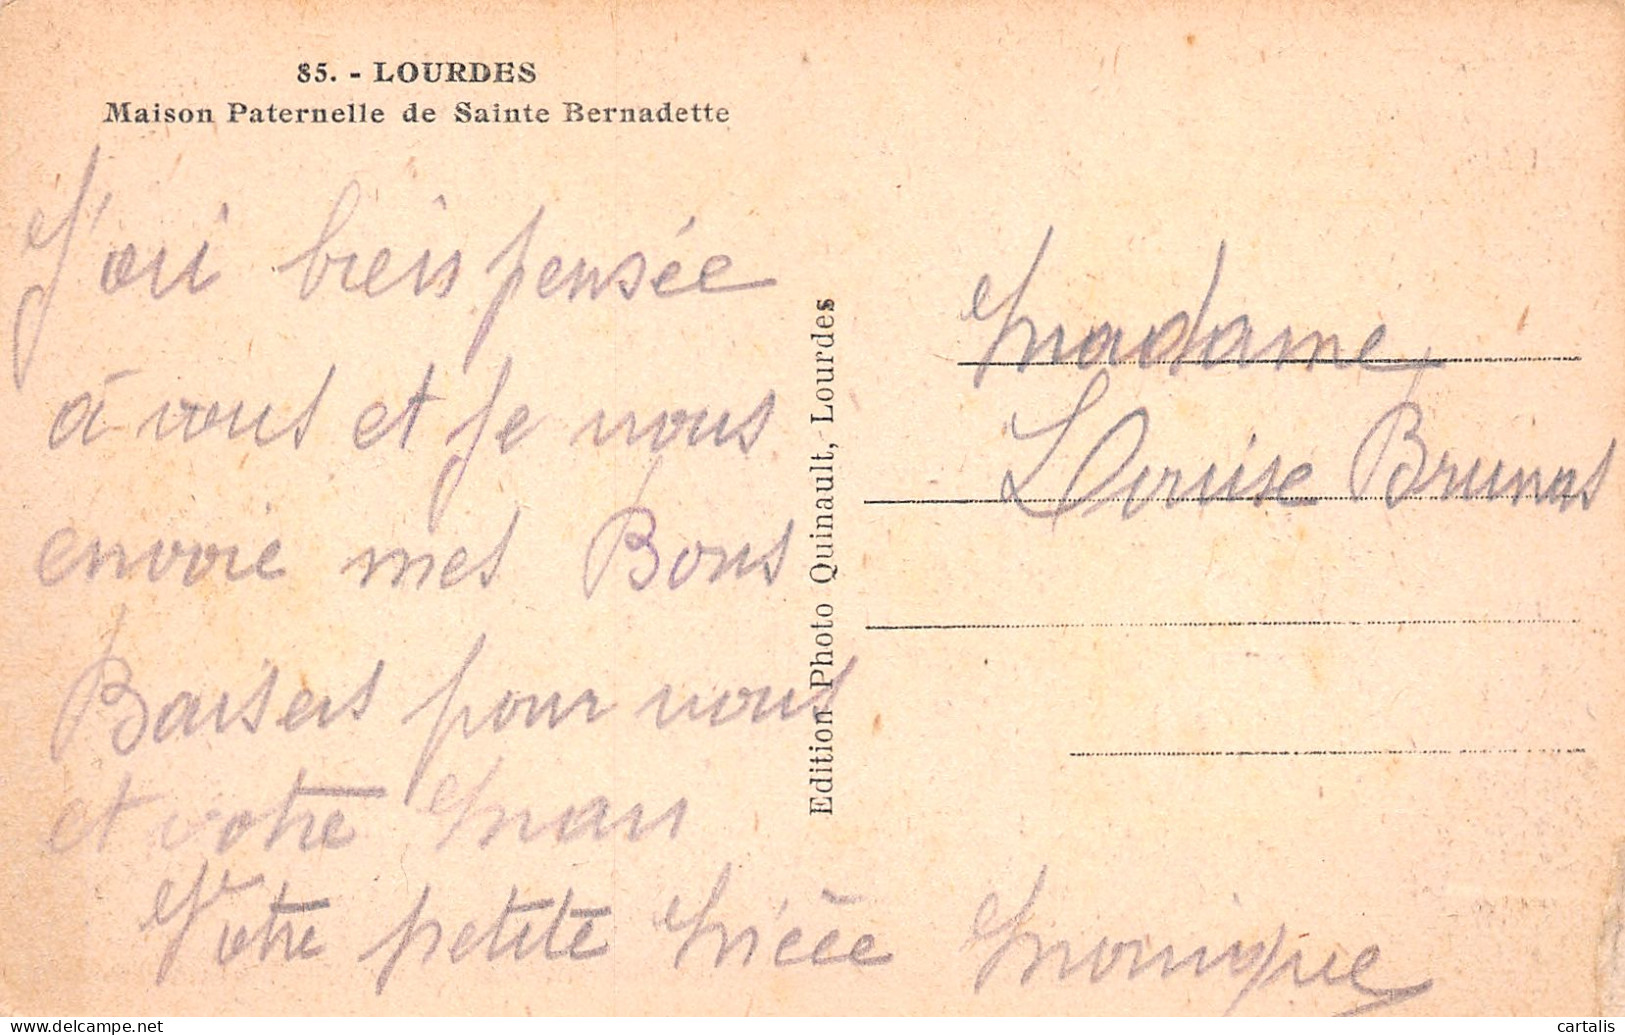 85. - LOURDES
Maison Paternelle de Sainte Bernadette
J'ai bien pensée
à vous et je vous
envoie mes Bons
Baisers pour vous
et votre Mari
Votre petite Nièce Monique
Edition Photo Quinault, Lourdes
Madame
Louise Brunos
delcampe.net
cartalis